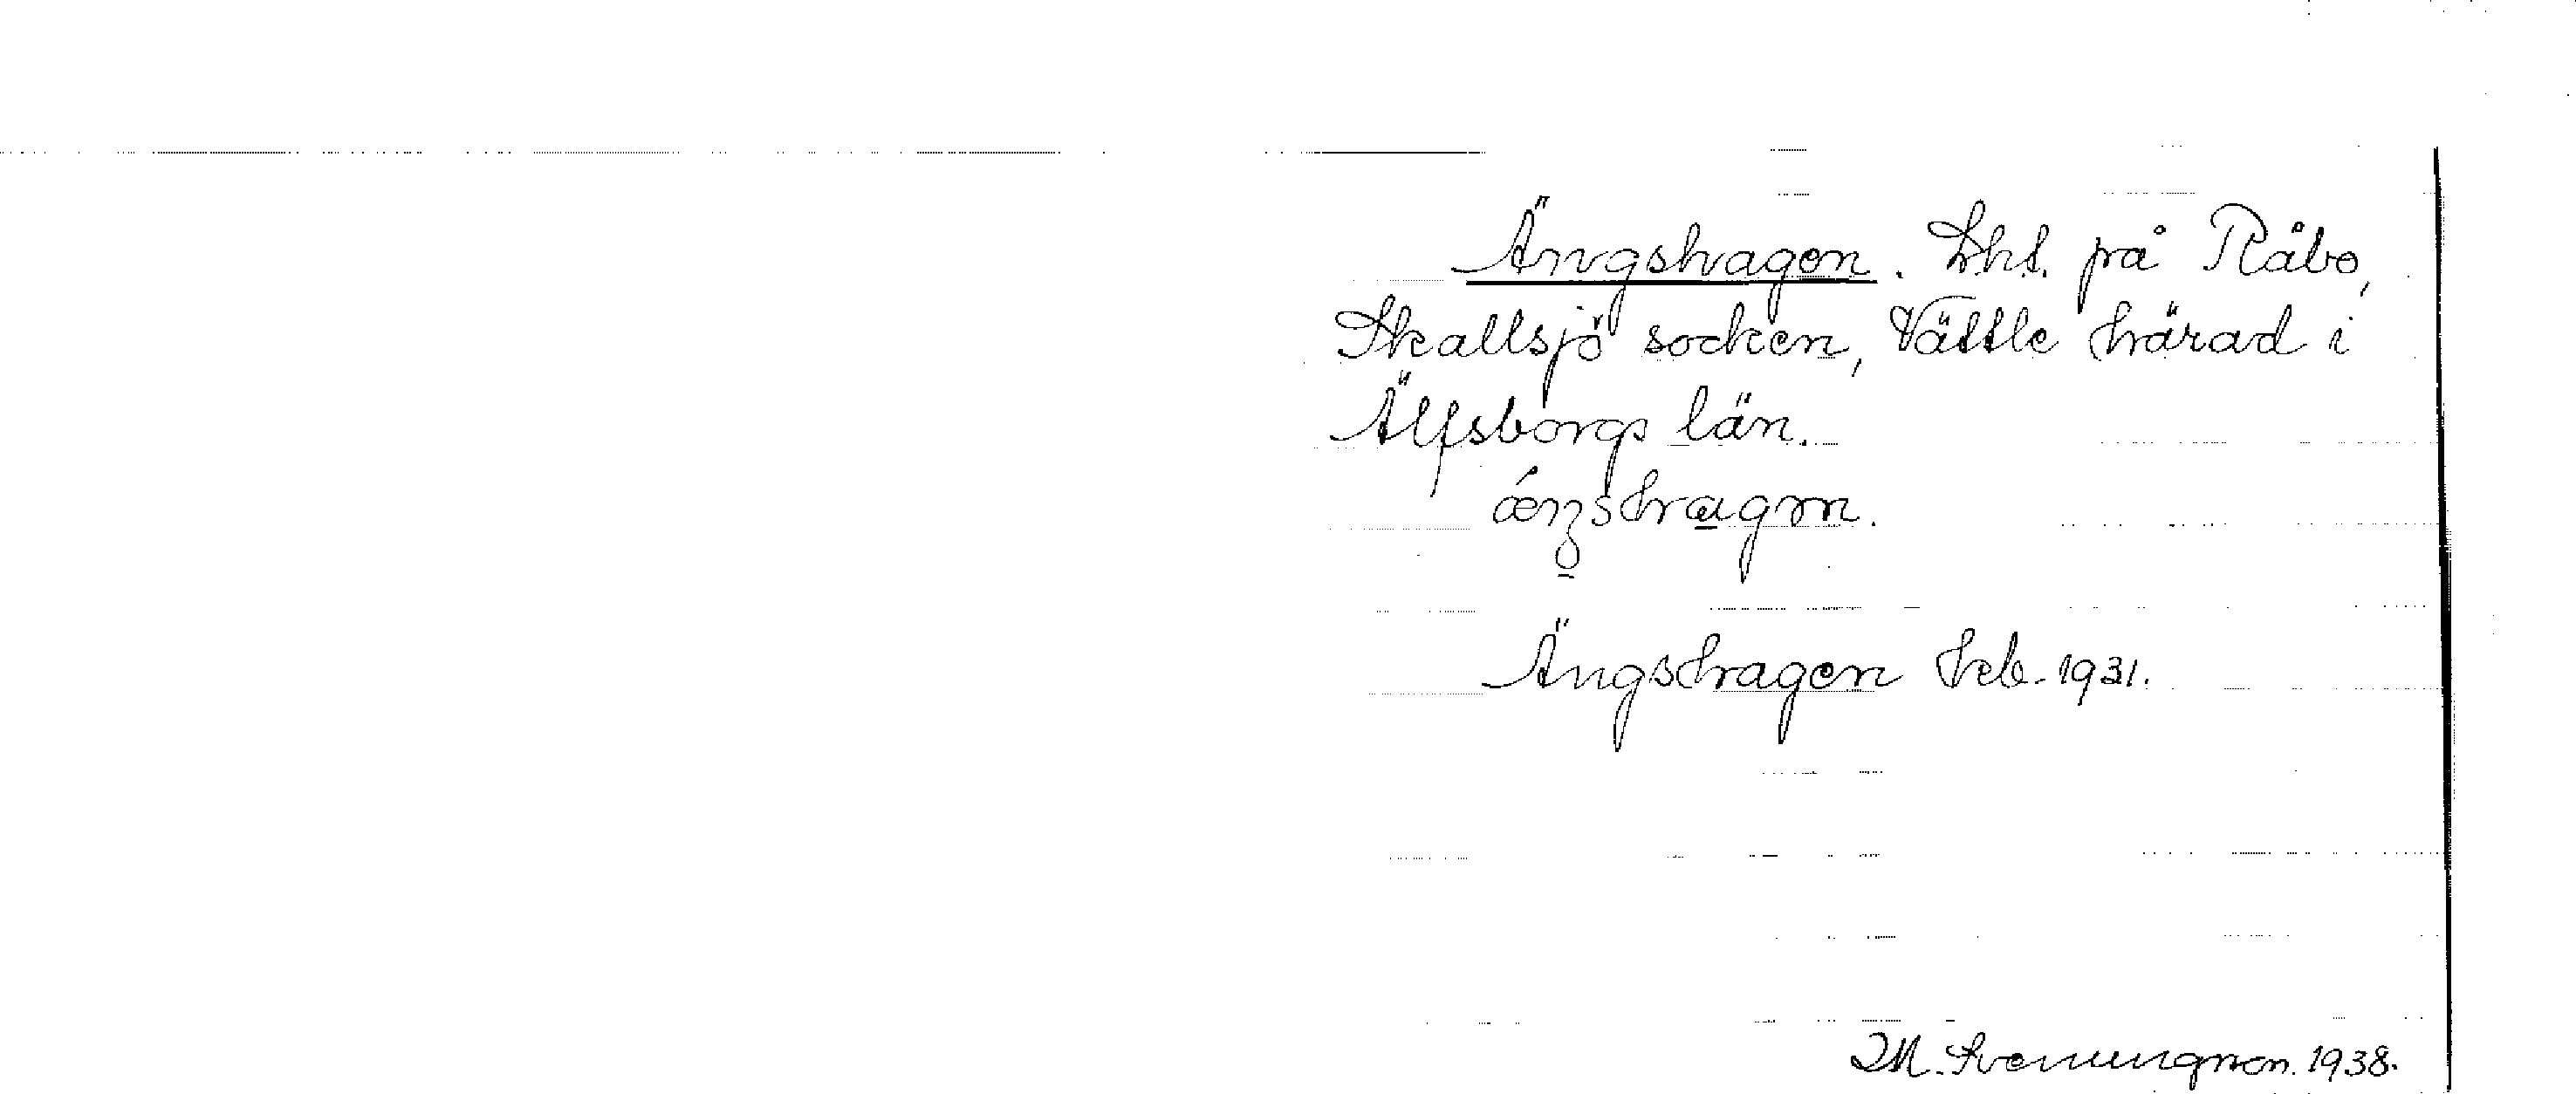 Ängshagen. Lht. på Råbo,
Skallsjö socken, Vättle härad i
Älfsborgs län.
ǽŋshagən.
Ängshagen Heb. 1931.
M. Svenungsson. 1938.